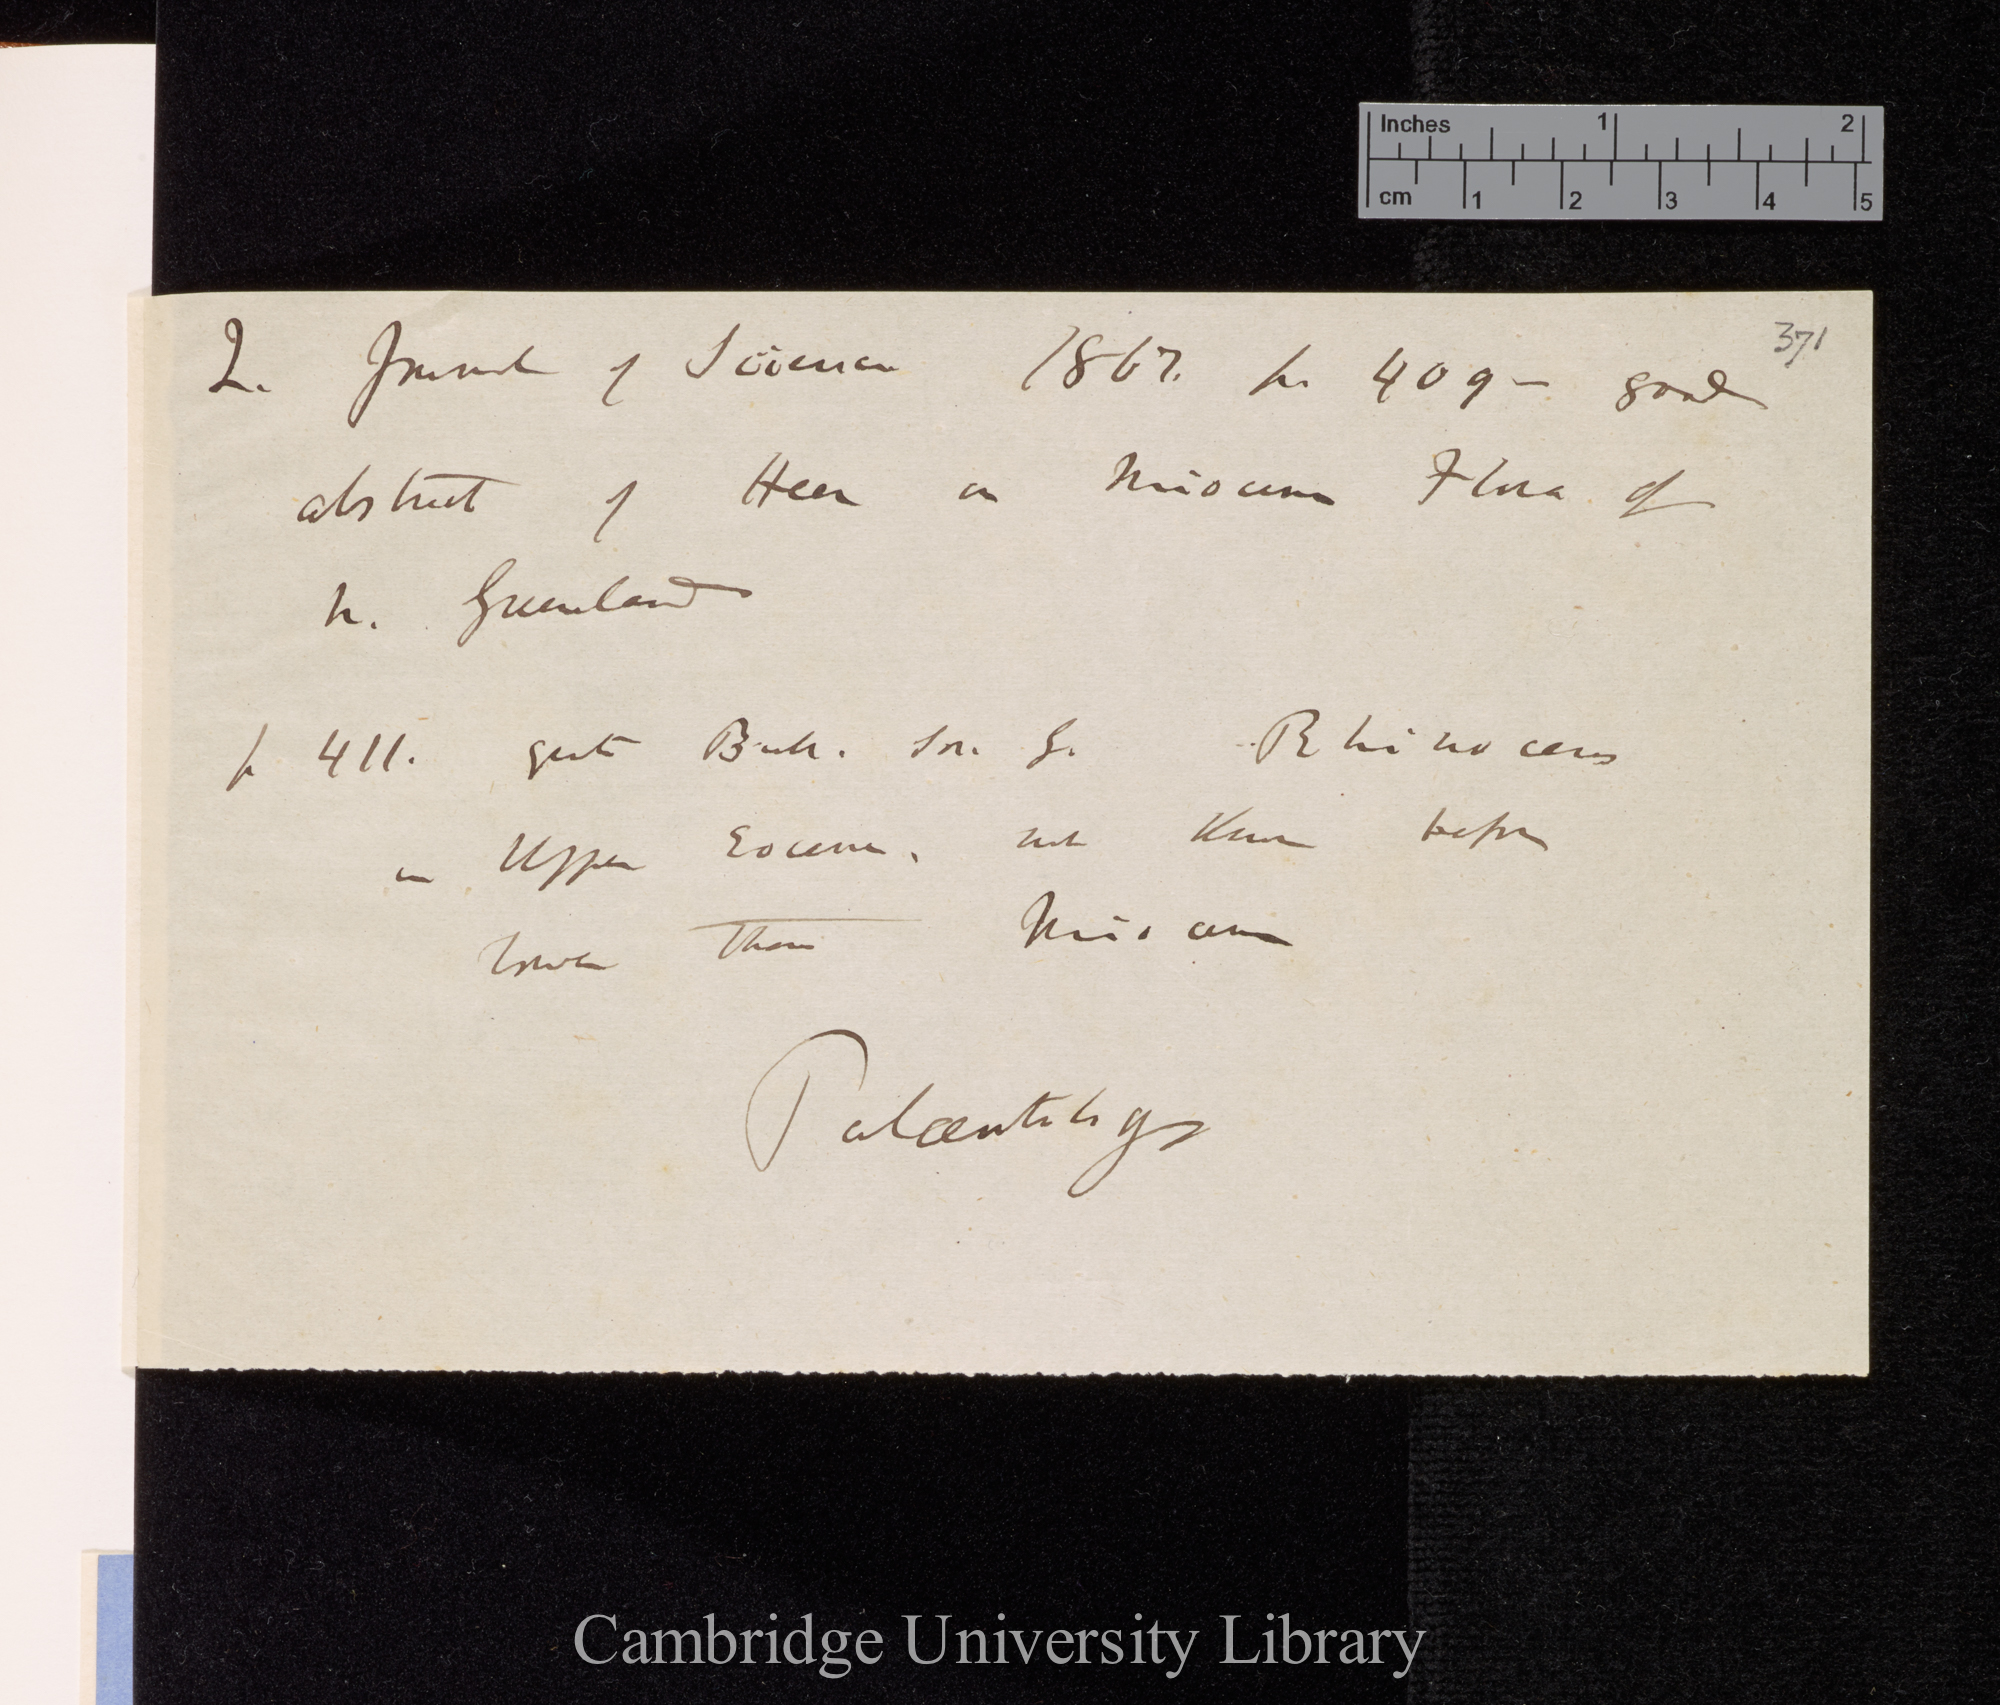 Inches 1 2
cm 1 2 3 4 5
371
Q. Journal of Science 1867. p. 409 — good
abstract of Heer on Miocene Flora of
N. Greenland
p 411. Rhinoceros
in Upper Eocene, not known before
lower than Miocene
Palæontology
Cambridge University Library